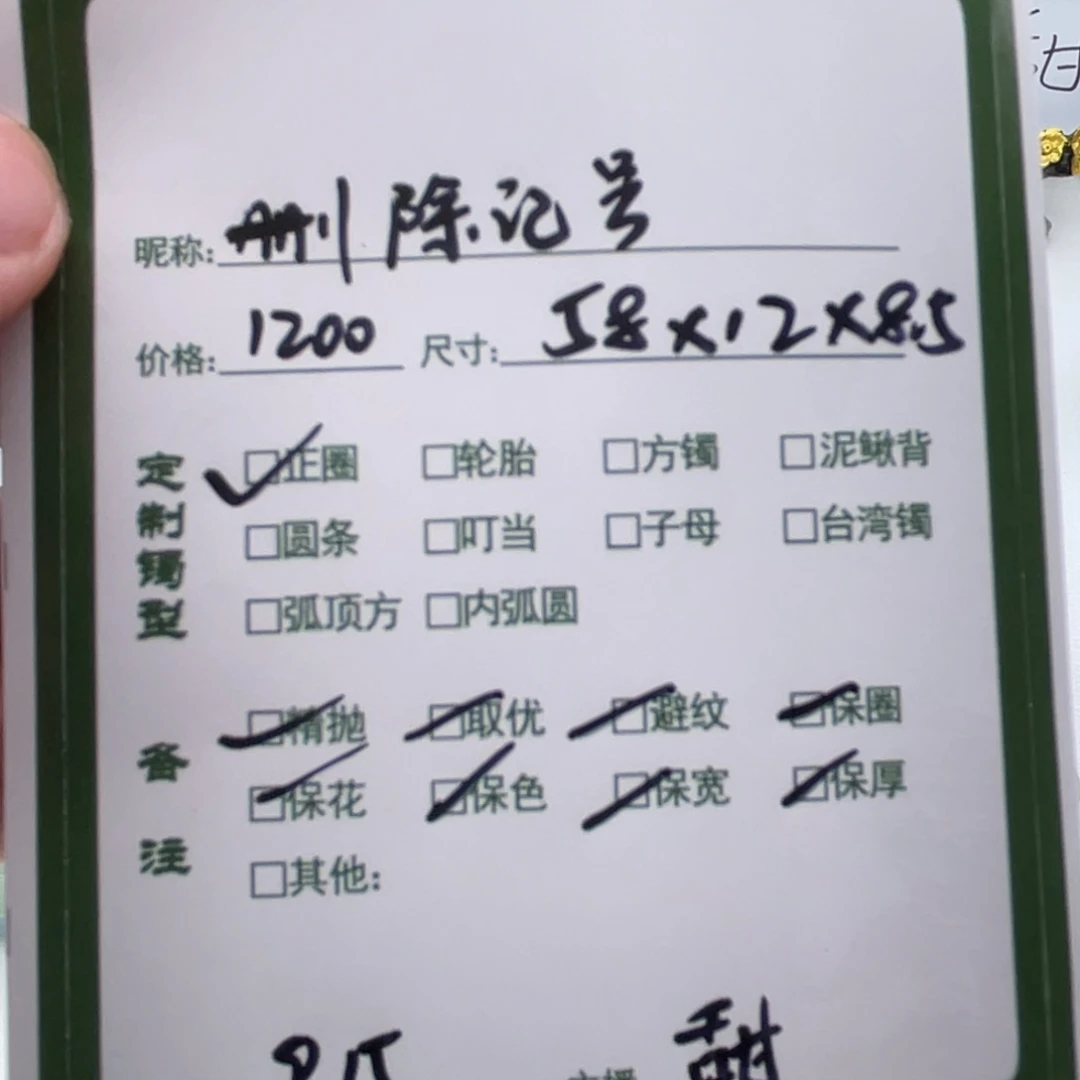 昵称:删除记号
价格:1200 尺寸:58×12×8.5
定制镯型
☑正圈 □轮胎 □方镯 □泥鳅背
□圆条 □叮当 □子母 □台湾镯
□弧顶方 □内弧圆
备注
☑精抛 ☑取优 ☑避纹 ☑保圈
☑保花 ☑保色 ☑保宽 ☑保厚
□其他:
主播 甜